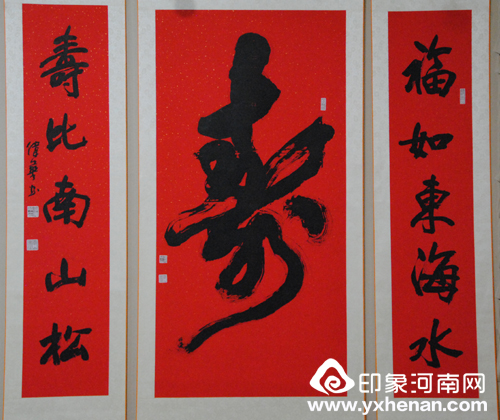 福如東海水
寿
壽比南山松
印象河南网
www.yxhenan.com